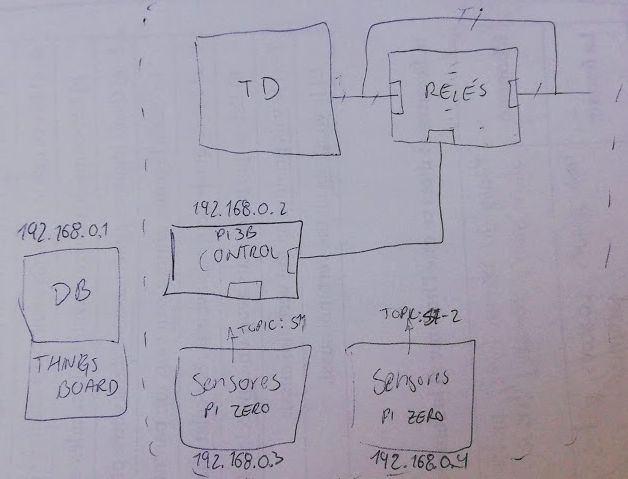 TD
RELÉS
192.168.0.2
Pi3B
CONTROL
192.168.0.1
DB
THINGS
BOARD
TOPIC:
Sensores
Pi ZERO
192.168.0.3
TOPIC: S1-2
Sensores
Pi ZERO
192.168.0.4